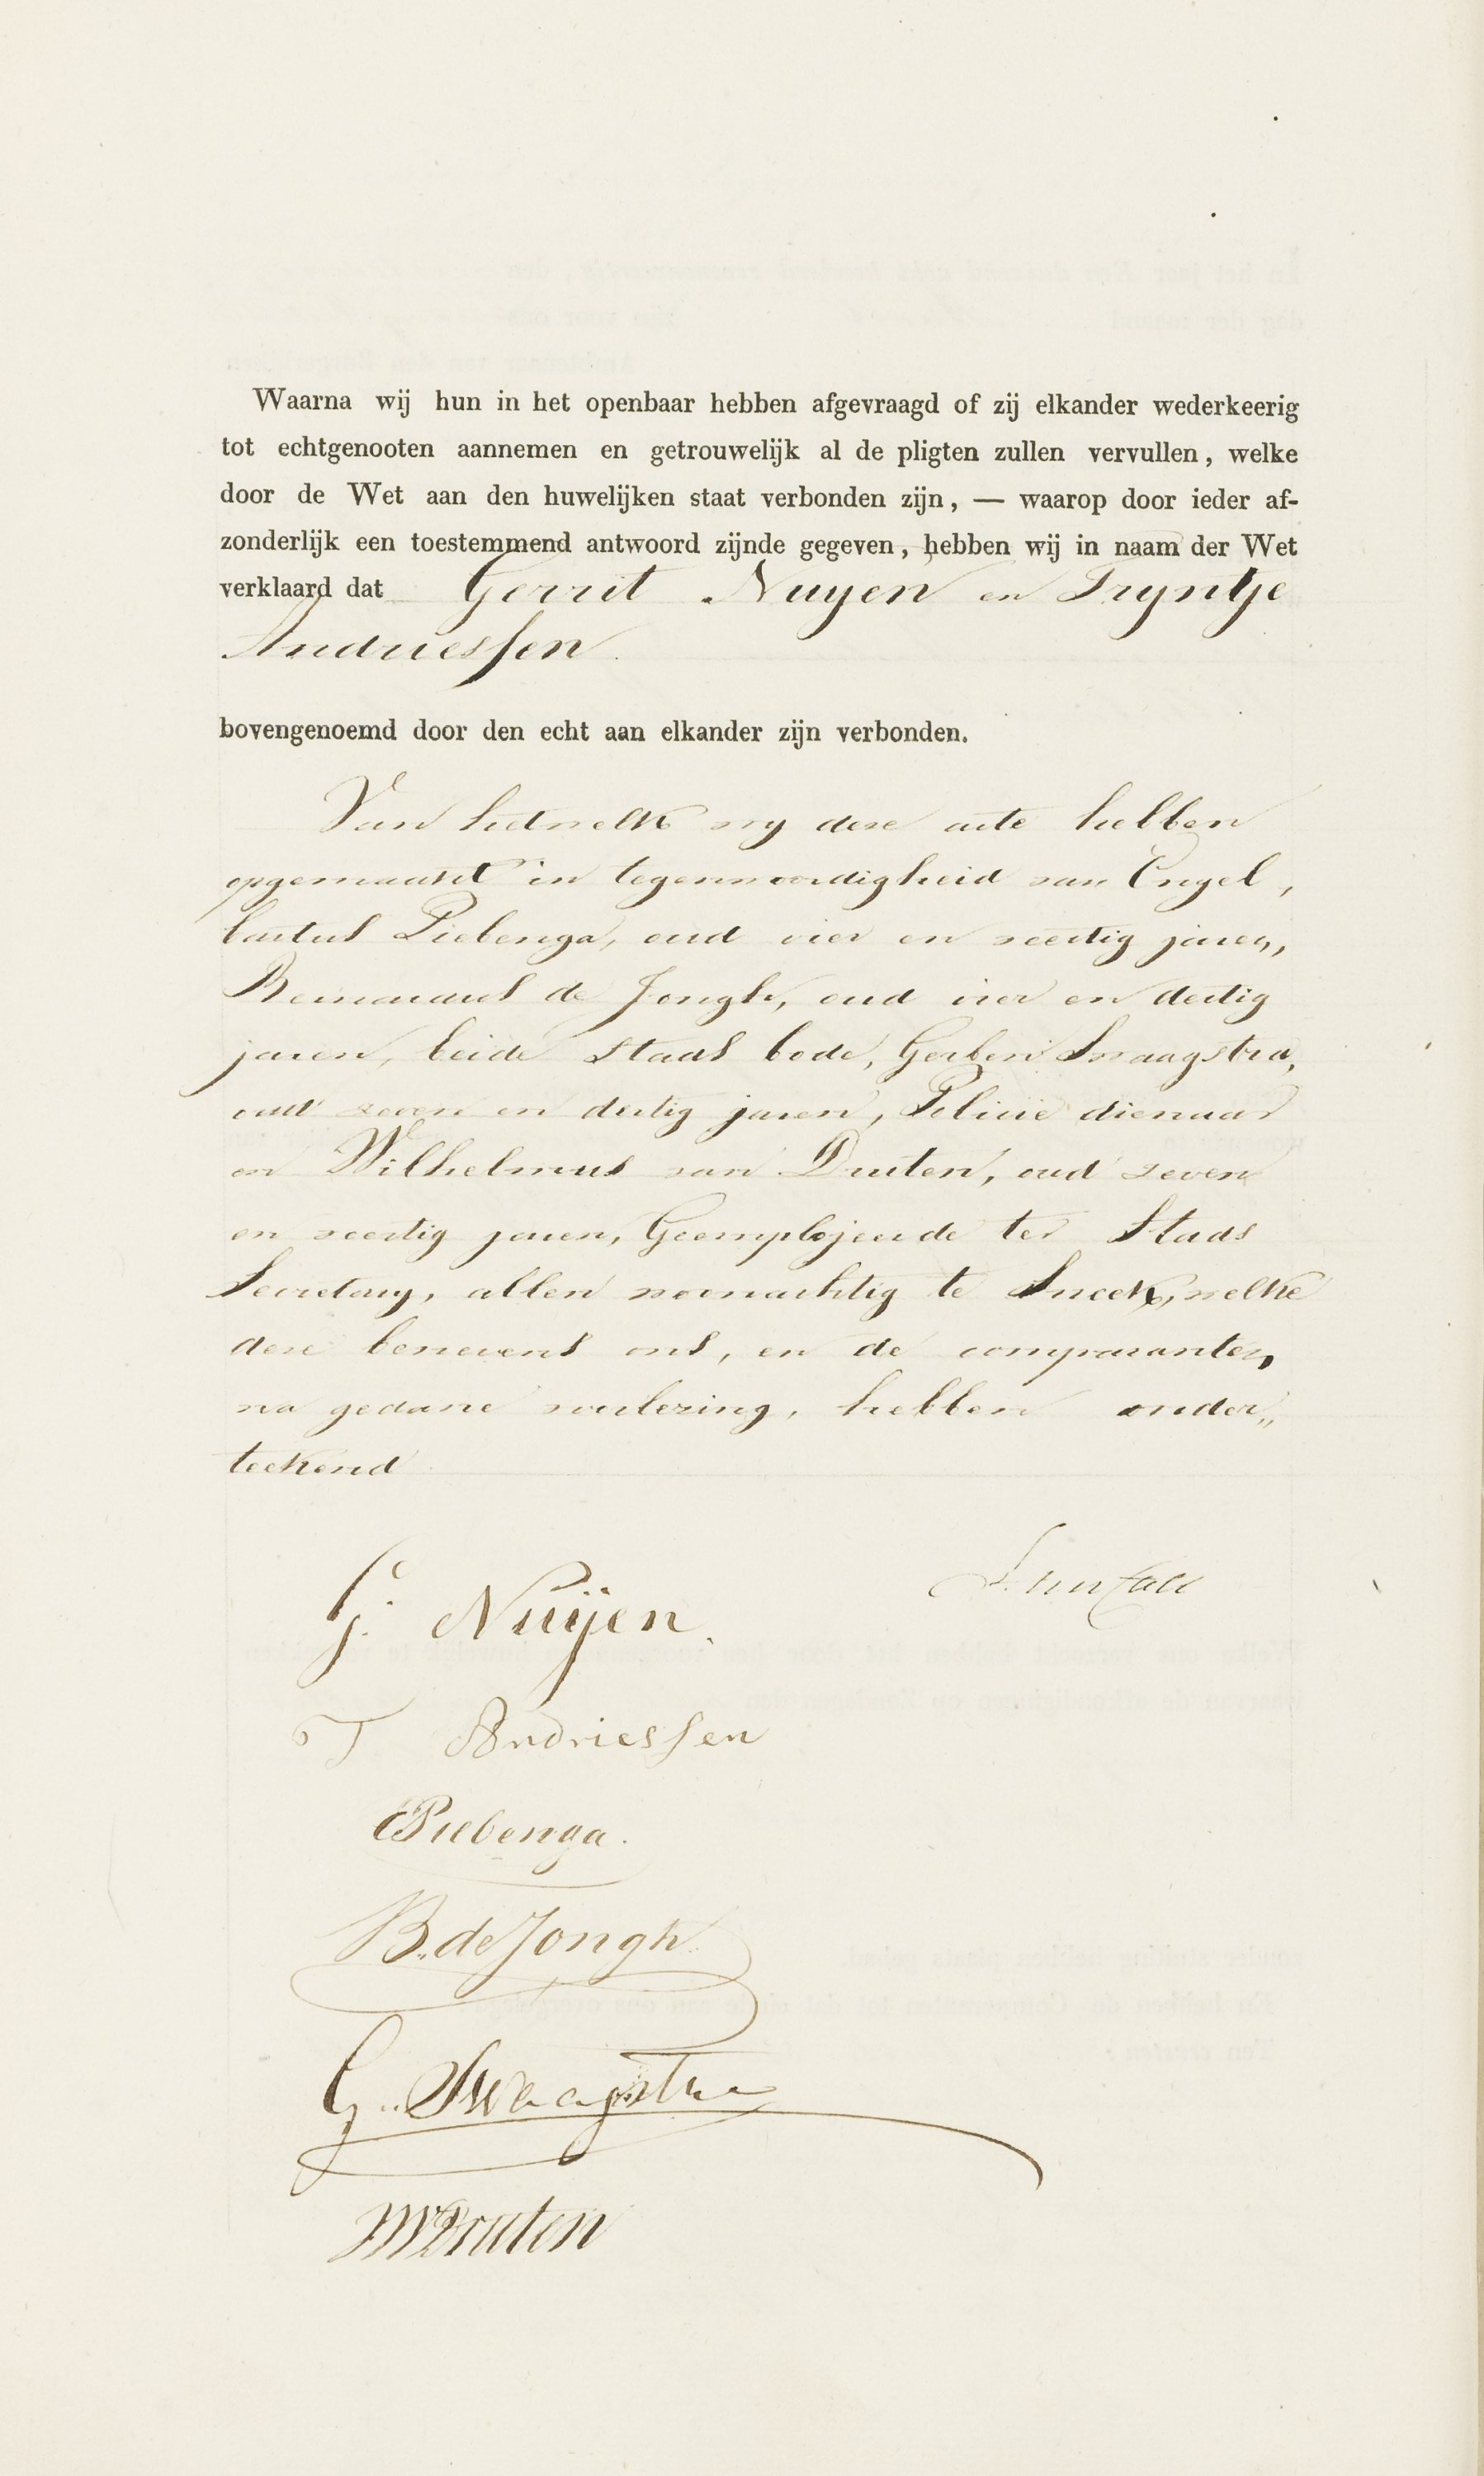 Waarna wij hun in het openbaar hebben afgevraagd of zij elkander wederkeerig
tot echtgenooten aannemen en getrouwelijk al de pligten zullen vervullen, welke
door de Wet aan den huwelijken staat verbonden zijn, — waarop door ieder af-
zonderlijk een toestemmend antwoord zijnde gegeven, hebben wij in naam der Wet
verklaard dat Gerrit Nuyen en Tryntje
Andriessen
bovengenoemd door den echt aan elkander zijn verbonden.
Van hetwelk wy deze acte hebben
opgemaakt in tegenwoordigheid van Engel,
bartus Piebenga, oud vier en veertig jaren,
Bernardus de Jongh, oud vier en dertig
jaren, beide Stads bode, Gerben Swaagstra,
oud zeven en dertig jaren, Policie dienaar
en Wilhelmus van Druten, oud zeven
en veertig jaren, Geemplojeerde ter Stads
Secretary, allen woonachtig te Sneek, welke
deze benevens ons, en de comparanten,
na gedane voorlezing, hebben onder„
teekend
G. Nuijen.
T Andriessen
EPiebenga.
B. de Jongh.
G. Swaagstra
WvDruten